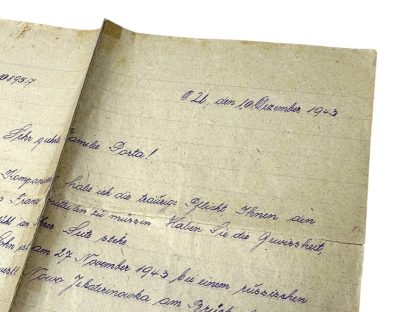 01957
O.U., den 10. Dezember 1943
Sehr geehrte Familie Porta!
Kompanie habe ich die traurige Pflicht Ihnen den
s Franz mitteilen zu müssen. Haben Sie die Gewissheit,
in Ihrer Seite stehe.
Sohn ist am 27. November 1943 bei einem russischen
Nowo Jekaterinowka am